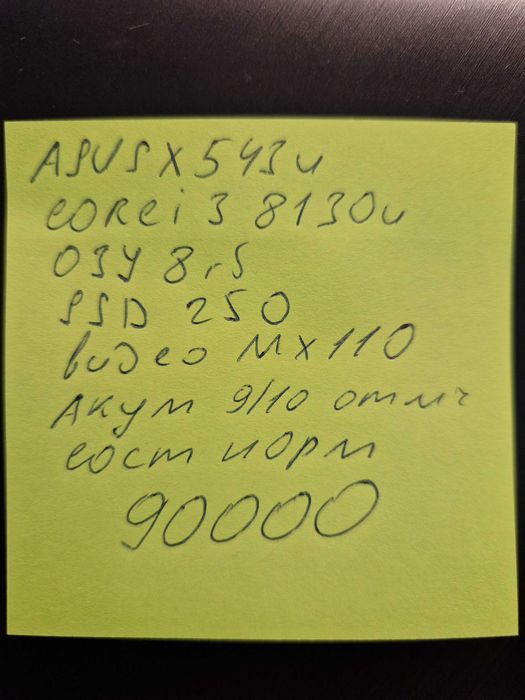 ASUS X543u
corei 3 8130u
ОЗУ 8гб
SSD 250
видео Mx110
Акум 9/10 отлич
сост норм
90000